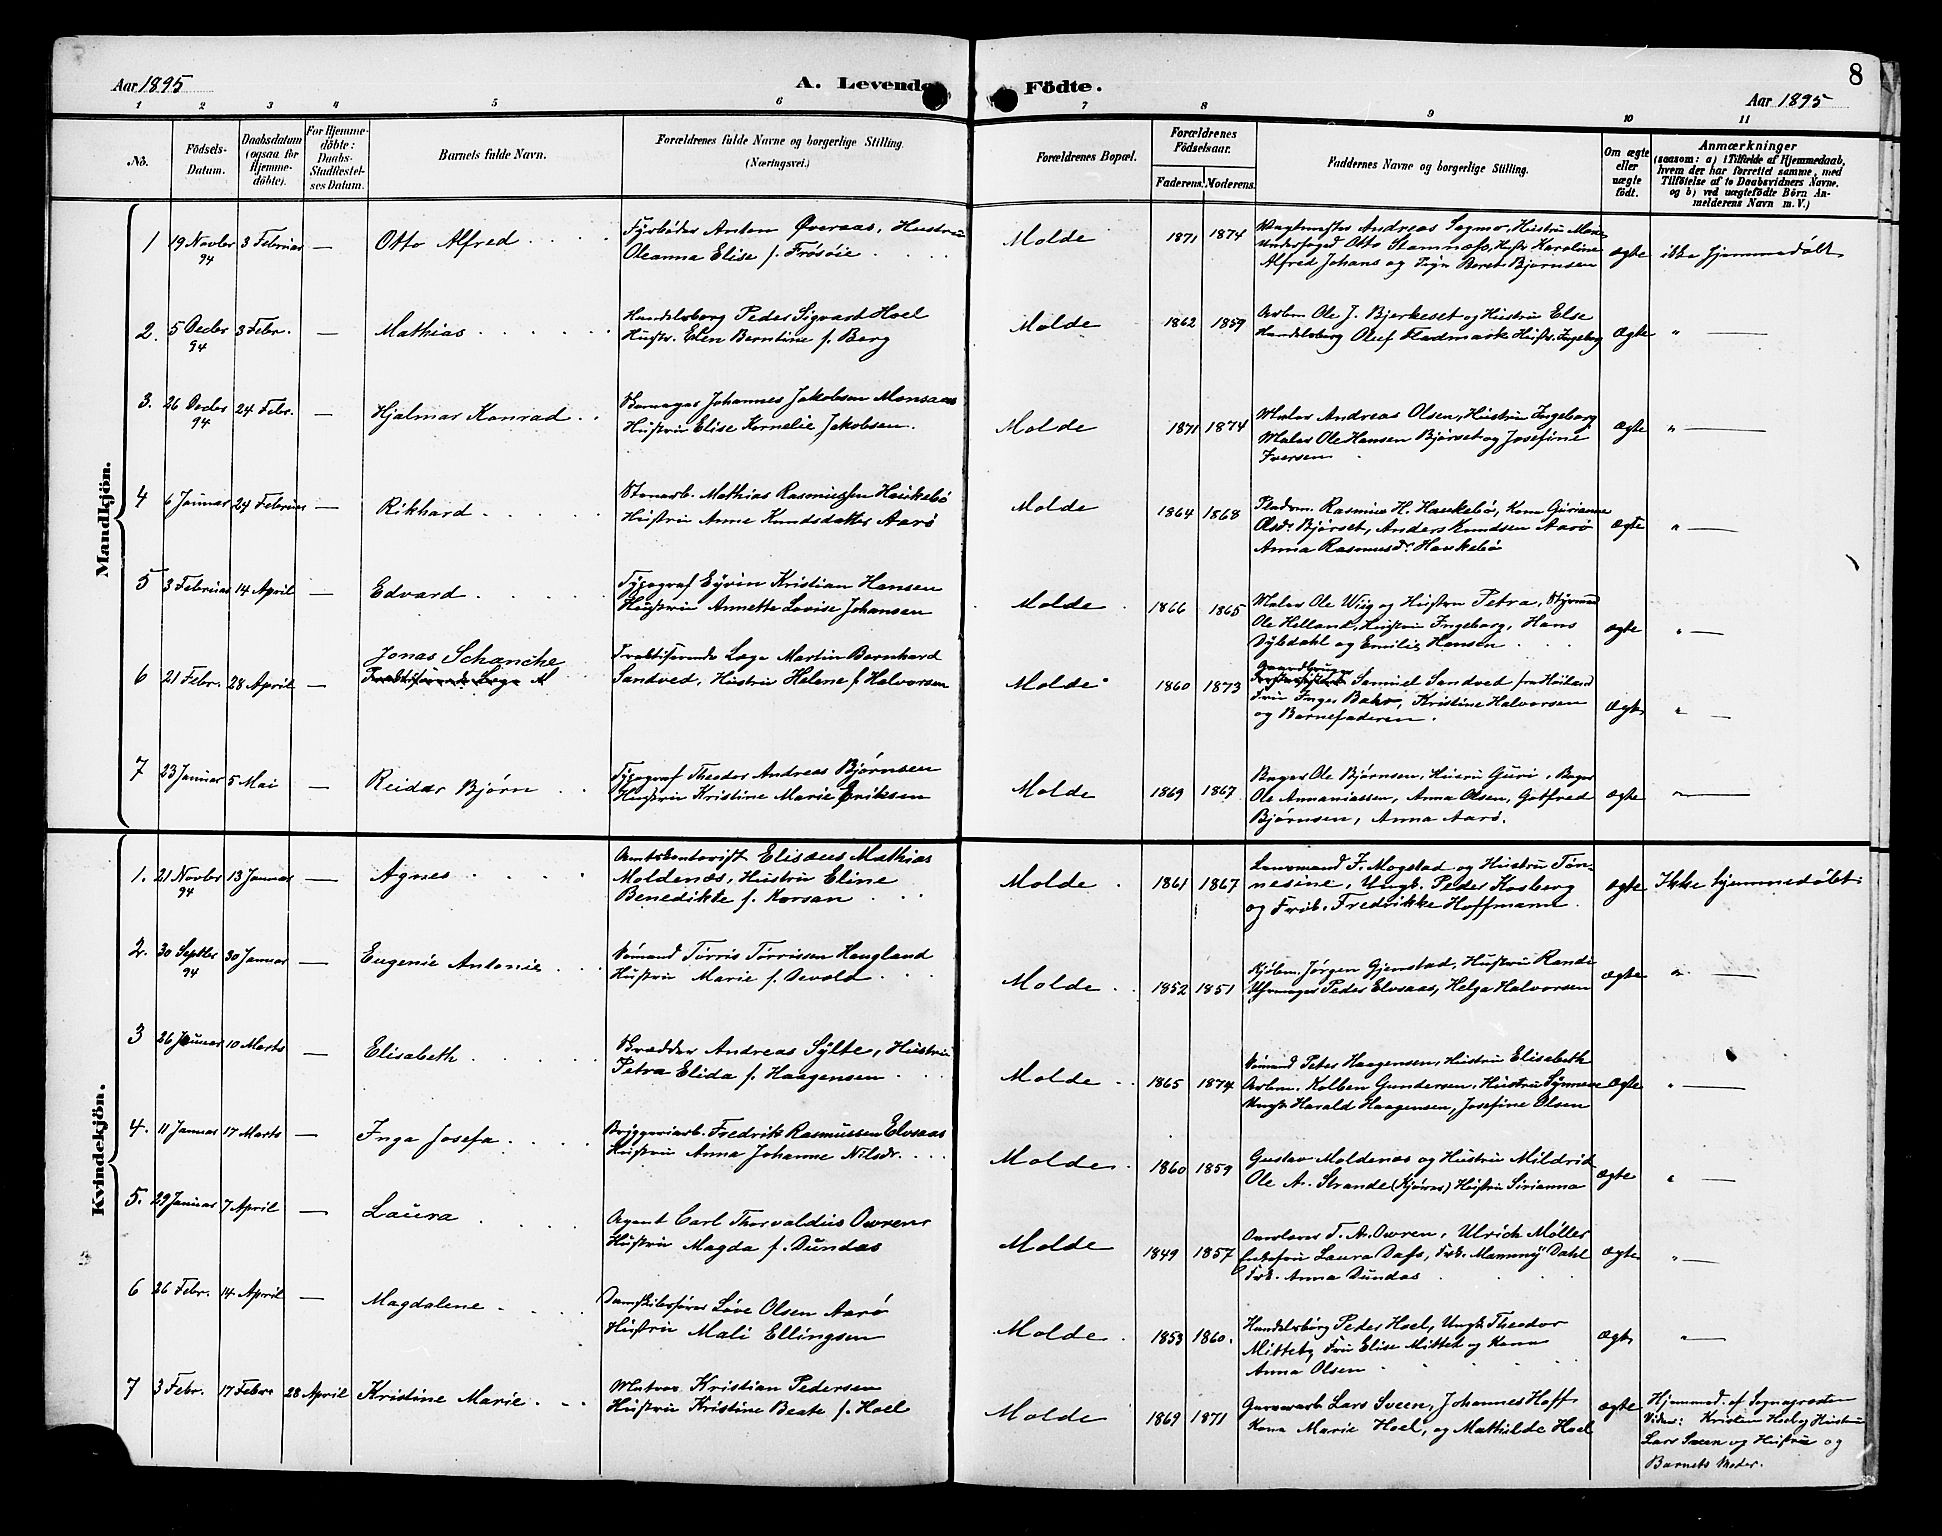 Aar 1895
A. Levende Födte.
8
Aar 1895
1 2 3 4 5 6 7 8 9 10 11
No.
Födsels-Datum.
Daabsdatum (ogsaa for Hjemme-döbte).
For Hjemme-döbte: Daabs-Stadfæstel-ses Datum.
Barnets fulde Navn.
Forældrenes fulde Navne og borgerlige Stilling. (Næringsvei.)
Forældrenes Bopæl.
Forældrenes Födselsaar.
Faderens. Moderens.
Faddernes Navne og borgerlige Stilling.
Om ægte eller uægte født.
Anmærkninger
(saasom: a) i Tilfælde af Hjemmedaab,
hvem der har forrettet samme, med
Tilføielse af to Daabsvidners Navne,
og b) ved uægtefödte Börn An-
melderens Navn m. V.)
Mandkjön.
1 19 Novbr 94 3 Februar — Otto Alfred
Fyrböder Anton Øveraas, Hustru
Oleanna Elise f. Frösöie
Molde 1871 1874
Vagtmester Andreas Sogmo, Hustru
Otto Stamnæss, Hustr Karoline
Alfred Johans og Pige Beret Bjørnsen
ægte ikke hjemmedøbt
2. 5 Decbr 94 3 Febr. — Mathias
Handelsborg Peder Sigvard Hoel
Hustr. Elen Berntine f. Berg
Molde 1862 1859
Arbm Ole J. Bjerkeset og Hustru Else
Handelsborg Oluf Fladmark Hustr. Ingeborg
Ægte " —
3. 26 Decbr 94 24 Febr. — Hjalmar Konrad
Johannes Jakobsen Monsaas
Hustru Elise Kornelie Jakobsen.
Molde 1871 1874
Maler Andreas Olsen, Hustru Ingeborg
Maler Ole Hansen Bjørset og Josefine
Iversen
Ægte " —
4 6 Januar 24 Februar — Rikhard
Stenarb. Mathias Rasmussen Haukebö
Hustru Anne Knudsdatter Aarö
Molde 1864 1868
Pladsm. Rasmus H. Haukebö, Kona Gurianne
Olsdr Bjørset, Anders Knudsen Aarö
Anna Rasmusdr Haukebö
Ægte " —
5 3 Februar 14 April — Edvard
Typograf Eyvin Kristian Hansen
Hustru Annette Lovise Johansen
Molde 1866 1865
Maler Ole Wiig og Hustru Petra, Styrmand
Ole Helland, Hustru Ingeborg, Hans
Dybdahl og Emilie Hansen
ægte " —
6 21 Febr. 28 April — Jonas Schancke
Praktiserende Læge M
Praktiserende Læge Martin Bernhard
Sandved, Hustru Helene f. Halvorsen
Molde 1860 1873
Gaardbruger
Samuel Sandved fra Höiland
Fru Inger Bahr, Kristine Halvorsen
og Barnefaderen.
ægte " —
7 23 Januar 5 Mai — Reidar Bjørn
Typograf Theodor Andreas Bjørnsen
Hustru Kristine Marie Eriksen
Molde 1869 1867
Bager Ole Bjørnsen, Hustru Guri, Bager
Ole Annaniassen, Anna Olsen, Gotfred
Bjørnsen, Anna Aarö.
ægte " —
Kvindekjön.
1. 21 Novbr 94 13 Januar — Agnes
Amtskontorist Elisæus Mathias
Moldenæs, Hustru Eline
Benedikte f. Korsan
Molde 1861 1867
Lensmand J. Mogstad og Hustru Tøn-
nesine, Ungk. Peder Kosberg
og Frøk. Fredrikke Hoffmann
ægte Ikke hjemmedøbt
2. 30 Septbr 94 30 Januar — Eugenie Antonie
Sømand Tørris Tørrissen Haugland
Hustru Marie f. Devold
Molde 1852 1851
Kjøbm. Jørgen Gjenstad, Hustru Randi
Peder Elvsaas, Helga Halvorsen
ægte " —
3 26 Januar 10 Marts — Elisabeth
Skrædder Andreas Sylte, Hustru
Petra Elida f. Haagensen
Molde 1865 1874
Sømand Peter Haagensen, Hustru Elisabeth
Arbm. Kolben Gundersen, Hustru Synneve
Ungk. Harald Haagensen, Josefine Olsen
Ægte " —
4. 11 Januar 17 Marts — Inga Josefa
Bryggeriarb. Fredrik Rasmussen Elvsaas
Hustru Anna Johanne Nilsdr.
Molde 1860 1859
Gustav Moldenæs og Hustru Mildrid
Ole A. Strande (Kjörer) Hustru Sirianna
Ægte " —
5. 29 Januar 7 April — Laura
Agent Carl Thorvaldius Owren
Hustru Magda f. Dundas
Molde 1849 1857
Overlærer T. A. Owren, Ulrich Møller
Enkefru Laura Dass, Frk. Mammy Dahl
Frk. Anna Dundas
Ægte " —
6 26 Febr. 14 April — Magdalene
Damskibsfører Løve Olsen Aarö
Hustru Mali Ellingsen
Molde 1853 1860.
Handelsborg Peder Hoel, Ungk. Theodor
Mittet, Fru Elise Mittet og Kona
Anna Olsen
Ægte " —
7 3 Febr. 17 Febr 28 April Kristine Marie
Matros Kristian Pedersen
Hustru Kristine Beate f. Hoel
Molde 1869 1871
Garverarb Lars Sveen, Johannes Hoff
Kona Marie Hoel, og Mathilde Hoel
ægte Hjemmed. af Sogneprsten
Vidner: Kristen Hoel og Hustru
Lars Sveen og Hustru og
Barnets Moder.